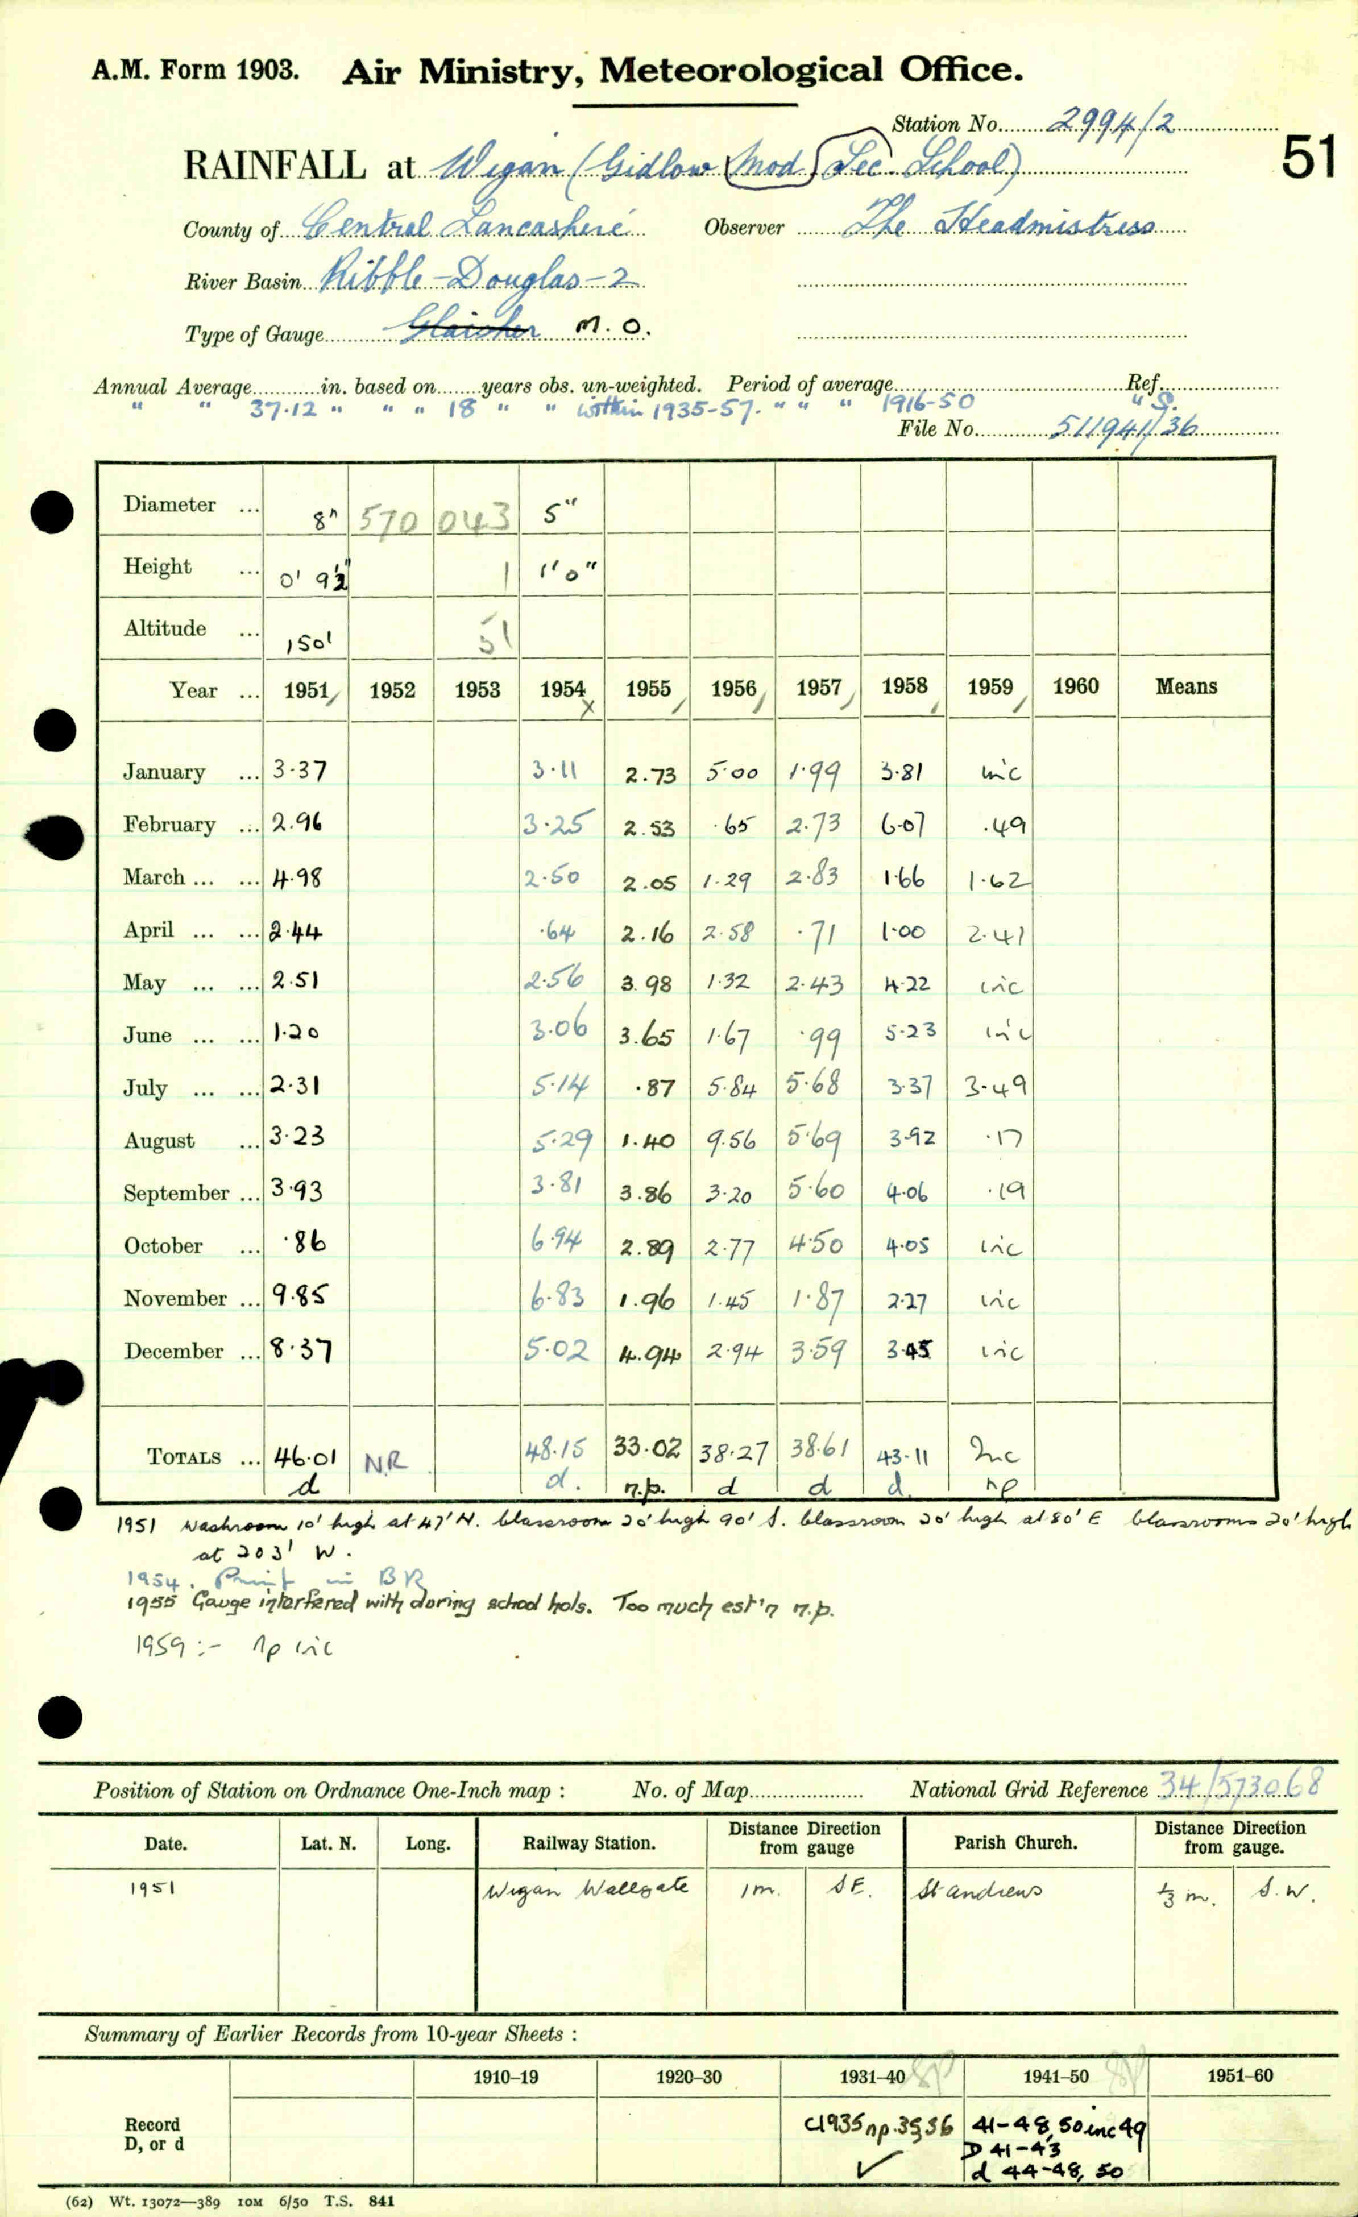 A.M. Form 1903. Air Ministry, Meteorological Office.
Station No. 2994/2
51
RAINFALL at Wigan (Gidlow Mod Sec. School)
County of Central Lancashire Observer The Headmistress
River Basin Ribble-Douglas-2
Type of Gauge Glaisher M.O.
Annual Average............in. based on........years obs. un-weighted. Period of average............Ref.
" " 37.12 " " " 18 " " within 1935-57. " " " 1916-50 " S.
File No. 511941/36
Diameter ... 8" 570 043 5"
Height ... 0' 9½" 1 1'0"
Altitude ... 150' 51
Year ... 1951 1952 1953 1954 1955 1956 1957 1958 1959 1960 Means
x
January ... 3.37 3.11 2.73 5.00 1.99 3.81 inc
February ... 2.96 3.25 2.53 .65 2.73 6.07 .49
March ... ... 4.98 2.50 2.05 1.29 2.83 1.66 1.62
April ... ... 2.44 .64 2.16 2.58 .71 1.00 2.41
May ... ... 2.51 2.56 3.98 1.32 2.43 4.22 inc
June ... ... 1.20 3.06 3.65 1.67 .99 5.23 inc
July ... ... 2.31 5.14 .87 5.84 5.68 3.37 3.49
August ... 3.23 5.29 1.40 9.56 5.69 3.92 .17
September ... 3.93 3.81 3.86 3.20 5.60 4.06 .19
October ... .86 6.94 2.89 2.77 4.50 4.05 inc
November ... 9.85 6.83 1.96 1.45 1.87 2.27 inc
December ... 8.37 5.02 4.94 2.94 3.59 3.45 inc
TOTALS ... 46.01 N.R. 48.15 33.02 38.27 38.61 43.11 Inc
d d. n.p. d d d. np
1951 Washroom 10' high at 47' N. Classroom 20' high 90' S. Classroom 20' high at 80' E Classrooms 20' high
at 203' W.
1954. Print in BR
1955 Gauge interfered with during school hols. Too much est'n n.p.
1959 :- np inc
Position of Station on Ordnance One-Inch map : No. of Map............ National Grid Reference 34/573068
Date. Lat. N. Long. Railway Station. Distance from Direction gauge Parish Church. Distance from Direction gauge.
1951 Wigan Wallgate 1m. SE. St Andrews ⅓ m. S.W.
Summary of Earlier Records from 10-year Sheets :
1910-19 1920-30 1931-40 1941-50 1951-60
Record D, or d
c1935 np.35,36 41-48, 50 inc 49
✓ D 41-43
d 44-48, 50
(62) Wt. 13072—389 10M 6/50 T.S. 841